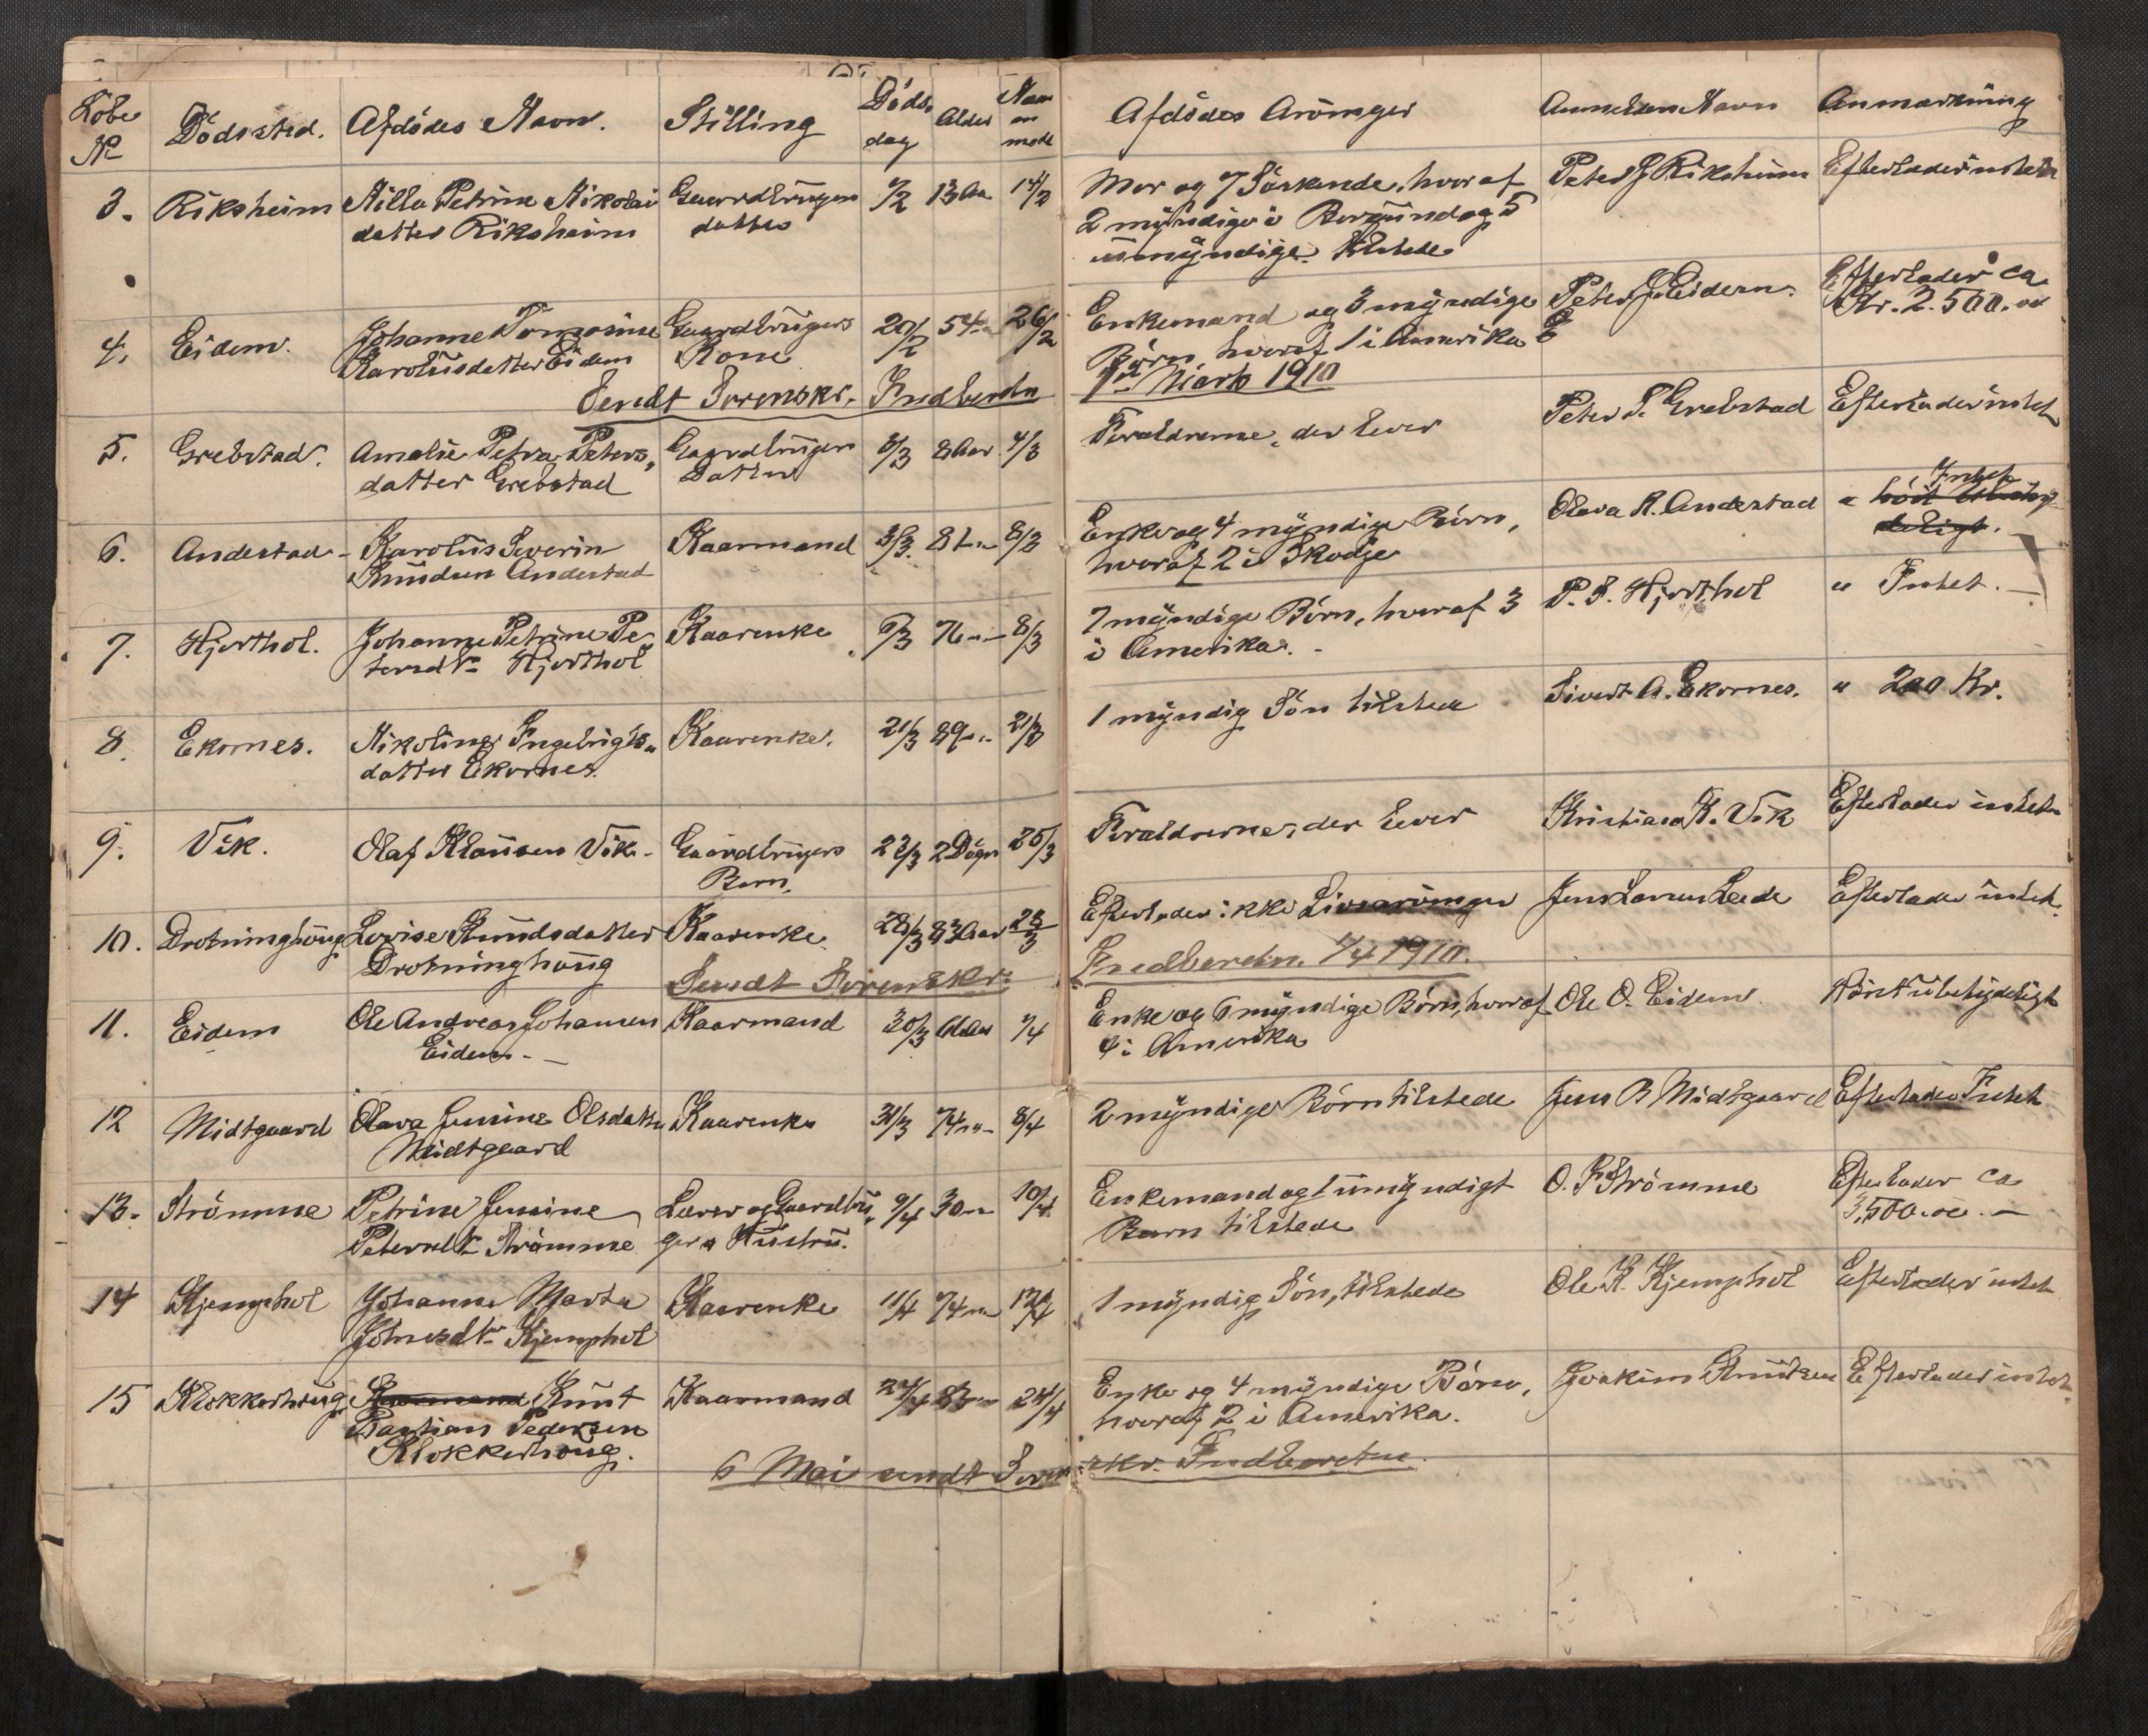 Löbe № Dödssted. Afdödes Navn. Stilling Döds- dag Alder Naar an meldt Afdödes Arvinger Anmelders Navn Anmærkning
3. Riksheim Nilla Petrine Nikolai Gaardbrugers 7/2 13 Aar 14/2 Mor og 7 Söskende, hvoraf Peter J Riksheim Efterlader intet
datter Riksheim datter 2 myndige i Borgund og 5
umyndige tilstede
4. Eidem. Johanne Tomasine Gaardbrugers 20/2 54 " 26/2 Enkemand og 3 myndige Peter J. Eidem. Efterlader ca
Karolusdatter Eidem Kone Börn hvoraf 1 i Amerika Kr. 2.500.00
Sendt Sorenskr. Indberetn 1ste Marts 1910
5. Grebstad. Amalie Petra Peters, Gaardbrugers 3/3 8 Aar 4/3 Forældrerne, der lever Peter P. Grebstad Efterlader intet
datter Grebstad Datter
6. Andestad Karolus Severin Kaarmand 3/3. 81 " 8/3 Enke og 4 myndige Börn, Olava K. Andestad " Intet
Knudsen Andestad hvoraf 2 i Skodje
7. Hjorthol. Johanne Petrine Pe- Kaarenke 6/3 76 " 8/3 7 myndige Börn, hvoraf 3 P. P. Hjorthol " Intet.
tersdtr Hjorthol i Amerika.
8. Ekornes. Nikoline Ingebrigts- Kaarenke. 21/3 89 " 21/3 1 myndig Sön tilstede Sivert A. Ekornes. " 200 Kr.
datter Ekornes.
9. Vik. Olaf Klausen Vik. Gaardbrugers 23/3 2 Dögn 26/3 Forældrerne, der lever Kristian K. Vik Efterlader intet
Barn.
10. Drotninghaug Lovise Knudsdatter Kaarenke 28/3 83 Aar 28/3 Efterlader ikke Livsarvinger Jens Larsen Leede Efterlader intet.
Drotninghaug
Sendt Sorenskr. Indberetn. 1/4 1910.
11. Eidem Ole Andreas Johansen Kaarmand 30/3 Aar 7/4 Enke og 6 myndige Börn, hvoraf Ole O. Eidem Höist ubetydeligt
Eidem. 4 i Amerika
12 Midtgaard Olava Jensine Olsdatter Kaarenke 31/3 74 " 8/4 2 myndige Börn tilstede Jens B Midtgaard Efterlader Intet
Midtgaard
13. Strömme Petrine Jensine Lærer og Gaardbru- 9/4 30 " 10/4 Enkemand og 1 umyndigt O. P Strömme Efterlader ca
Petersdtr Strömme gers Hustru. Barn tilstede 3,500.00.
14 Kjemphol Johanne Marta Kaarenke 11/4 74 " 12/4 1 myndig Sön, tilstede Ole K. Kjemphol Efterlader intet
Johnsdtr Kjemphol
15 Klokkerhaug Kaarmand Knut Kaarmand 24/4 83 " 24/4 Enke og 4 myndige Börn, Joakim Knutsen Efterlader intet.
Bastian Pedersen hvoraf 2 i Amerika.
Klokkerhaug.
6 Mai sendt Soren skr. Indberetn.